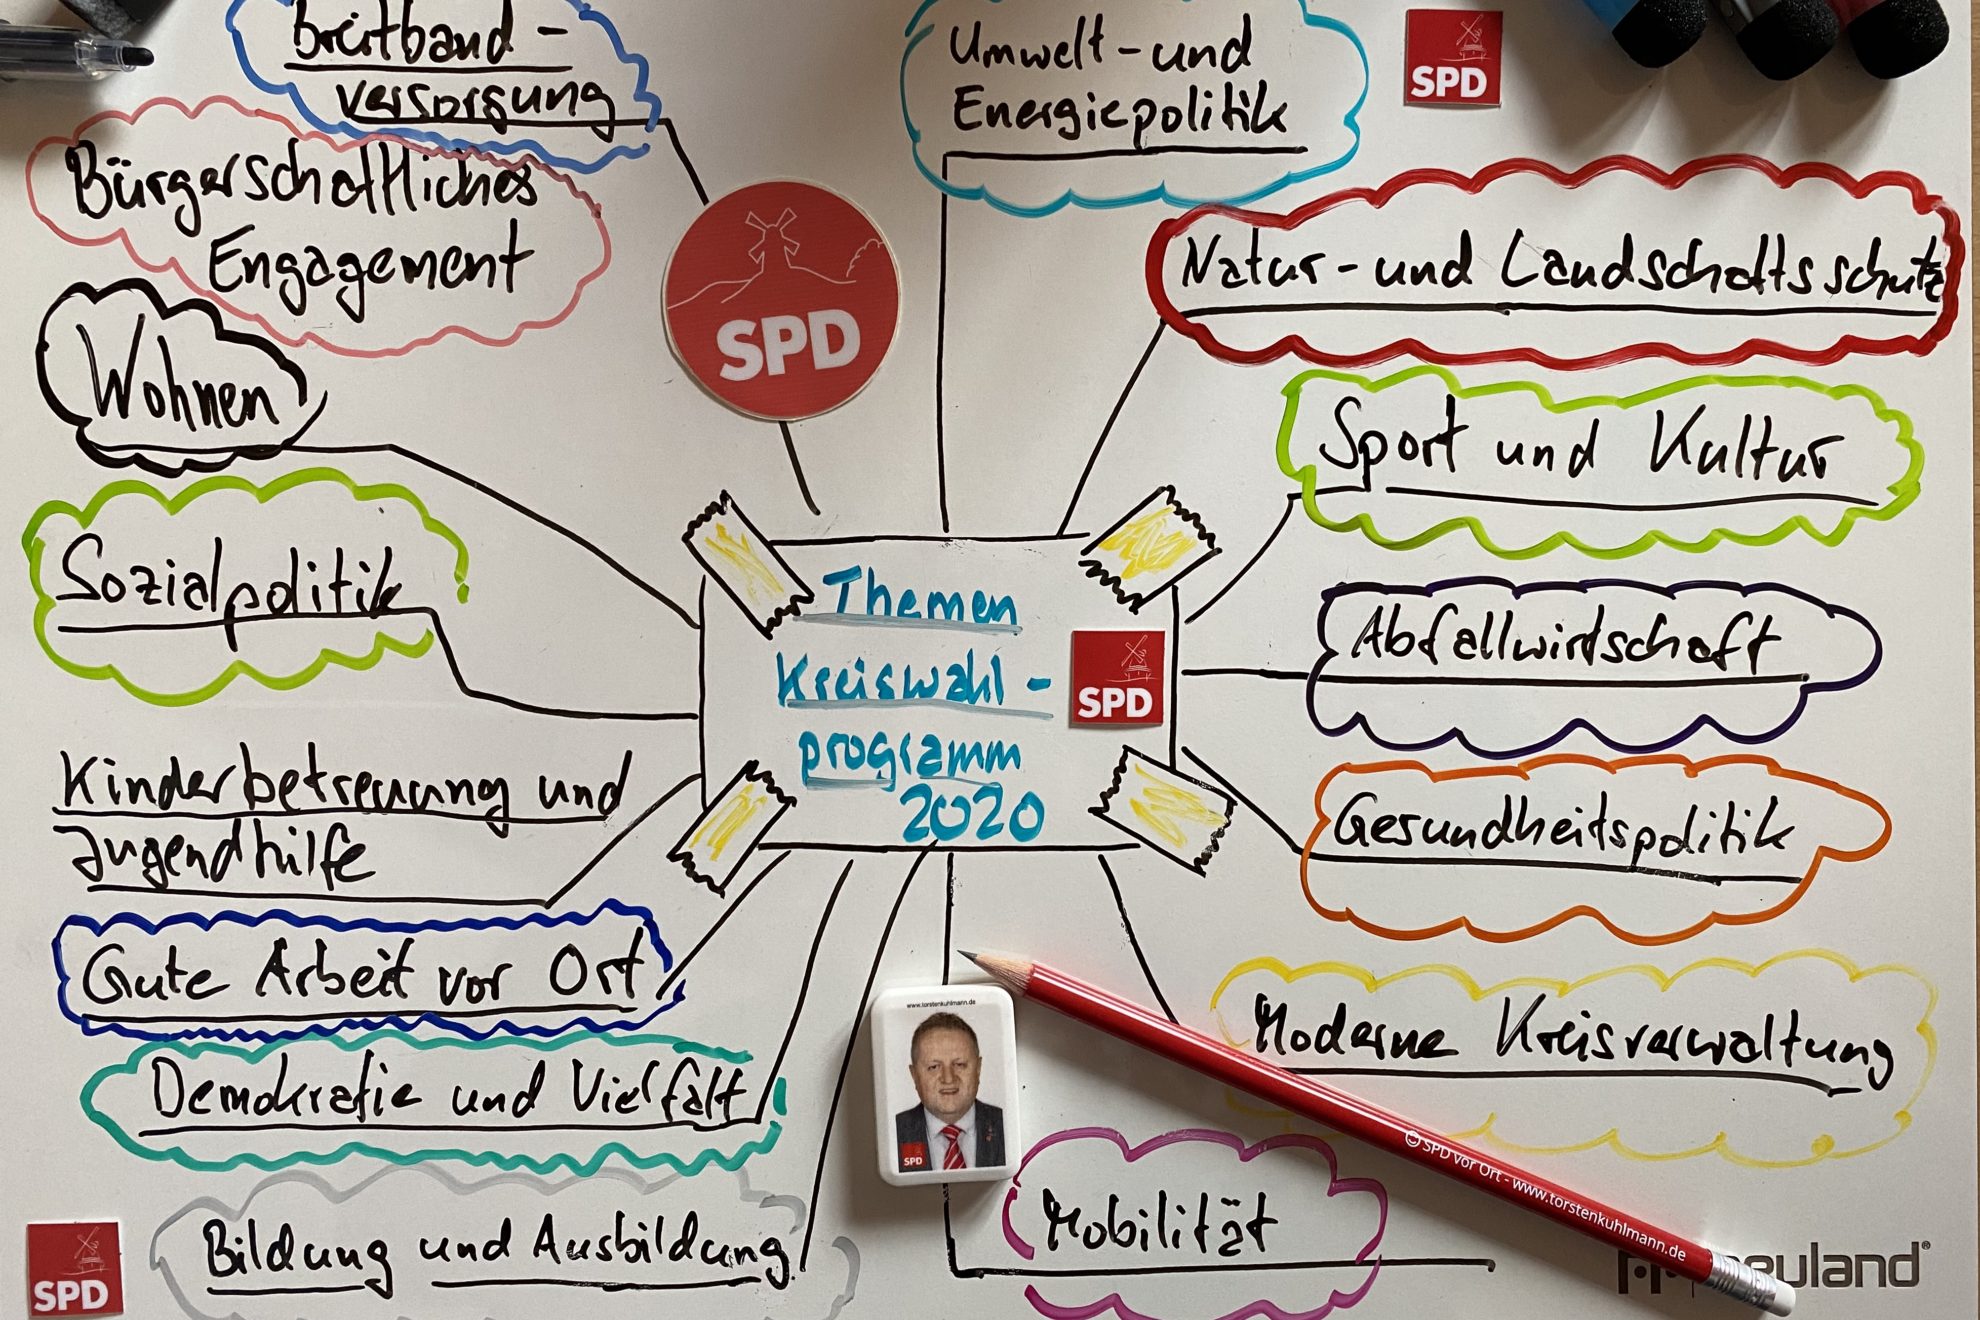 Breitband-
versorgung
Umwelt-und
Energiepolitik
SPD
Bürgerschaftliches
Engagement
SPD
Natur-und Landschaftsschutz
Wohnen
Sport und Kultur
Sozialpolitik
Themen
Kreiswahl-
programm
2020
SPD
Abfallwirtschaft
Kinderbetreuung und
Jugendhilfe
Gesundheitspolitik
Gute Arbeit vor Ort
Moderne Kreisverwaltung
www.torstenkuhlmann.de
SPD
Demokratie und Vielfalt
SPD vor Ort - www.torstenkuhlmann.de
Bildung und Ausbildung
Mobilität
SPD
neuland®